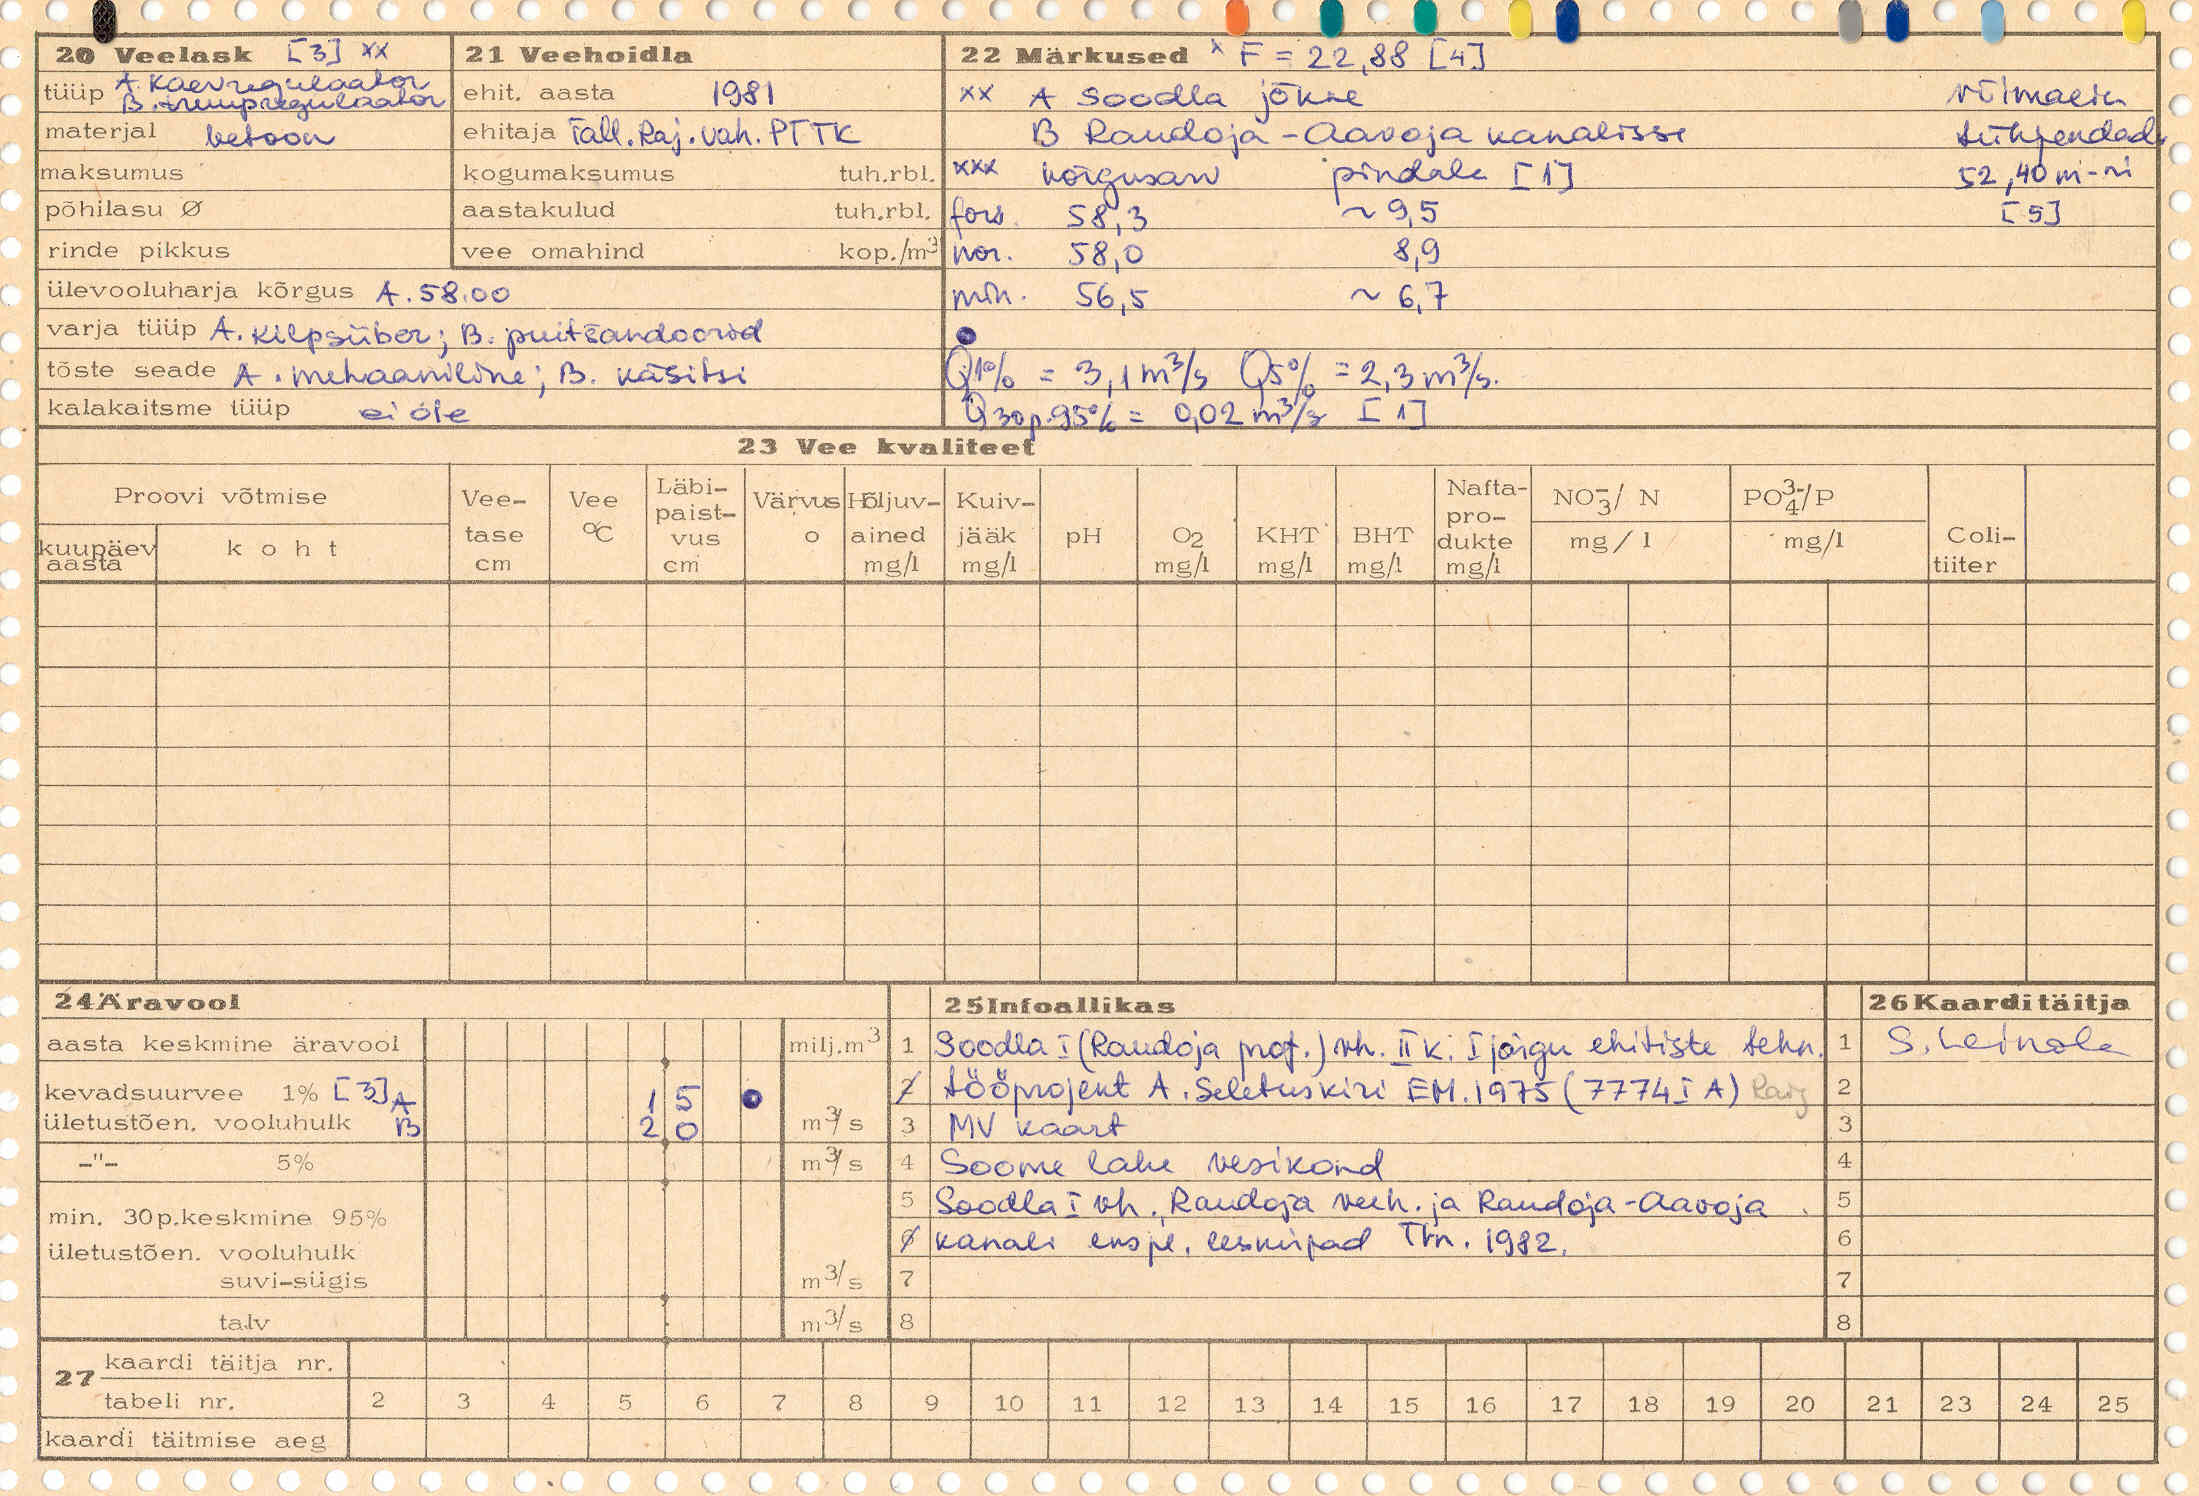 20 Veelask [3] xx
tüüp A. Kaevregulaator
B. truupregulaator
materjal betoon
maksumus
põhilasu Ø
rinde pikkus
ülevooluharja kõrgus A. 58.00
varja tüüp A. kilpsiiber; B. puitšandoorid
tõste seade A. mehaaniline; B. käsitsi
kalakaitsme tüüp ei ole
21 Veehoidla
ehit. aasta 1981
ehitaja Tall. Raj. vah. PTTK
kogumaksumus tuh.rbl.
aastakulud tuh.rbl.
vee omahind kop./m³
22 Märkused x F = 22,88 [4]
xx A Soodla jõkke
B Raudoja - Aavoja kanalisse
xxx kõrgusarv pindala [1]
fors. 58,3 ~ 9,5
nor. 58,0 8,9
min. 56,5 ~ 6,7
võimalik
tühjendada
52,40 m-ni
[5]
Q1% = 3,1 m³/s Q5% = 2,3 m³/s.
Q30p.95% = 0,02 m³/s [1]
23 Vee kvaliteet
Proovi võtmise
kuupäev aasta
koht
Vee-tase cm
Vee °C
Läbi-paist-vus cm
Värvus o
Hõljuv-ained mg/l
Kuiv-jääk mg/l
pH
O2 mg/l
KHT mg/l
BHT mg/l
Nafta-pro-dukte mg/l
NO3-/ N mg/l
PO4 3-/P mg/l
Coli-tiiter
24 Äravool
aasta keskmine äravool milj.m³
kevadsuurvee 1% [3] A 1 5
ületustõen. vooluhulk B 2 0 m³/s
-"- 5% m³/s
min. 30p.keskmine 95%
ületustõen. vooluhulk
suvi-sügis m³/s
talv m³/s
25 Infoallikas
1 Soodla I (Raudoja proj.) vh. II k. I järgu ehitiste tehn.
2 tööprojekt A. Seletuskiri EM. 1975 (7774 I A)
3 MV kaart
4 Soome lahe vesikond
5 Soodla I vh., Raudoja veeh. ja Raudoja-Aavoja
6 kanali ekspl. eeskirjad Tln. 1982.
7
8
26 Kaardi täitja
1 S. Leinola
2
3
4
5
6
7
8
27 kaardi täitja nr.
tabeli nr. 2 3 4 5 6 7 8 9 10 11 12 13 14 15 16 17 18 19 20 21 23 24 25
kaardi täitmise aeg